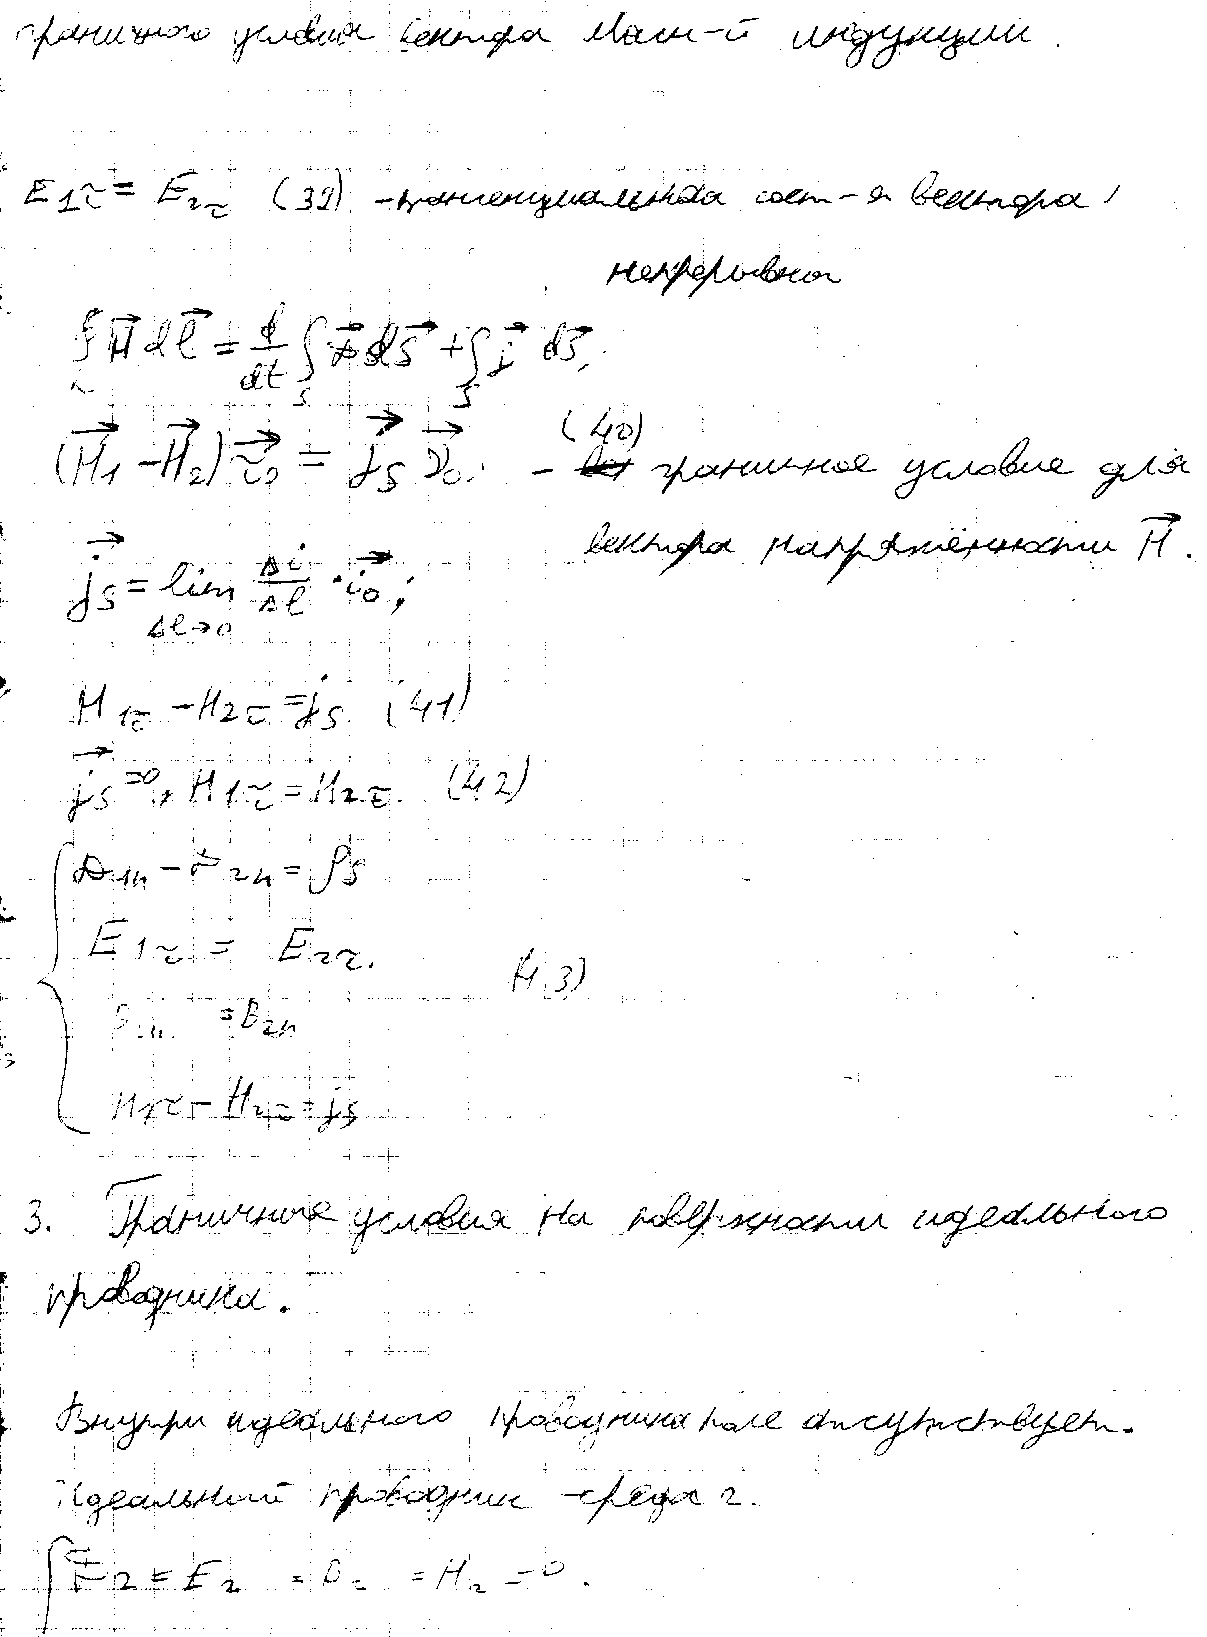 граничного условия вектора магн-й индукции.
E₁τ = E₂τ (39) - тангенциальная сост-я вектора
непрерывна
∮ H⃗ dl⃗ = d/dt ∫ D⃗ dS⃗ + ∫ j⃗ dS⃗,
L S S
(40)
(H⃗₁ - H⃗₂) τ⃗₀ = j⃗s ν⃗₀. - граничное условие для
вектора напряжённости H⃗.
j⃗s = lim Δi/Δl · i⃗₀;
Δl→0
H₁τ - H₂τ = js. (41)
j⃗s = 0, H₁τ = H₂τ. (42)
D₁n - D₂n = ρs
E₁τ = E₂τ.
(43)
B₁n = B₂n
H₁τ - H₂τ = js
3. Граничные условия на поверхности идеального
проводника.
Внутри идеального проводника поле отсутствует.
Идеальный проводник - среда 2.
E₂ = B₂ = H₂ = 0.